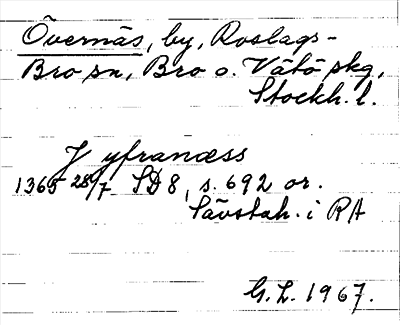 Övernäs, by, Roslags-
Bro sn, Bro o. Vätö skg,
Stockh. l.
J yfranæss
1365 28/7 SD 8, s. 692 or.
Sävstah. i RA
G. L. 1967.